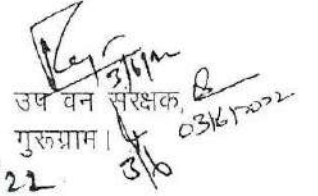 3/6/22
उप वन संरक्षक,
03/6/2022
गुरूग्राम।
3/6
22